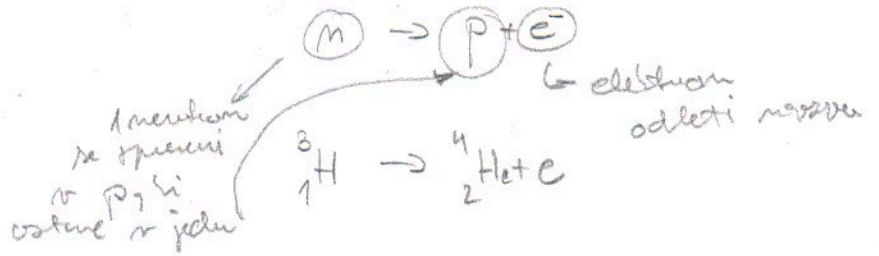 n → p + e⁻
↳ elektron
odleti
1 neutron
se spremeni
v p, ki
ostane v jedru
³₁H → ⁴₂He + e